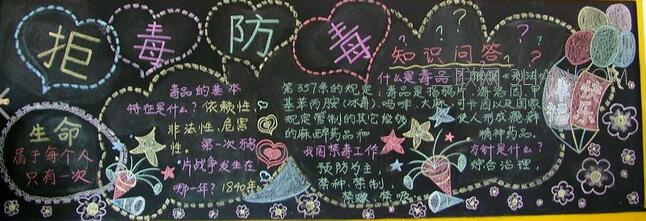 拒毒防毒
知识问答
生命
属于每个人
只有一次
毒品的基本
特征是什么？依赖性、
非法性、危害
性。
第一次鸦
片战争发生在
哪一年？1840年
什么是毒品？根据《刑法》
第357条的规定，毒品是指鸦片、海洛因、甲
基苯丙胺（冰毒）、吗啡、大麻、可卡因以及国家
规定管制的其它能够使人形成瘾癖
的麻醉药品和精神药品。
我国禁毒工作方针是什么？
预防为主，综合治理，
禁种、禁制、
禁贩、禁吸
幸福
快乐